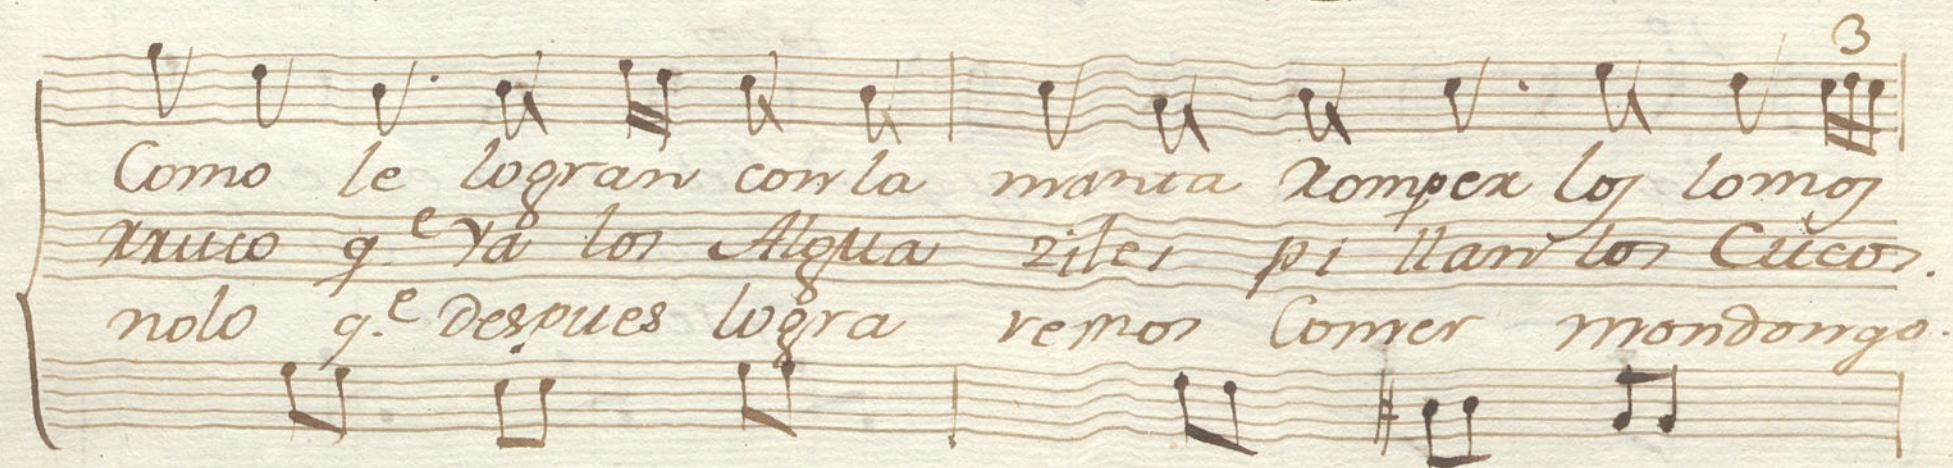 3
Como le logran con la manta romper los lomos
rruco q.e Ya los Algua ziles pi llan los Cucos.
nolo q.e despues logra remos Comer mondongo.